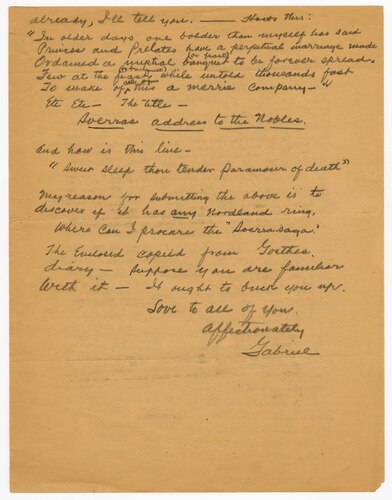 already, I'll tell you. — Hows this:
"In older days one bolder than myself has said
Princes and Prelates have a perpetual marriage made
(or feast)
Ordained a nuptial banquet to be forever spread
Few at the feast, while untold thousands fast
To make of this a merrie company — "
Etc Etc — The title —
Sverras address to the Nobles.
And how is this line —
" Sweet sleep thou tender Paramour of death"
My reason for submitting the above is to
discover if it has any Nordland ring.
Where can I procure the "Sverresaga."
The Enclosed copied from Goethes
diary — suppose you are familiar
with it — It ought to buck you up.
Love to all of you.
Affectionately
Gabriel